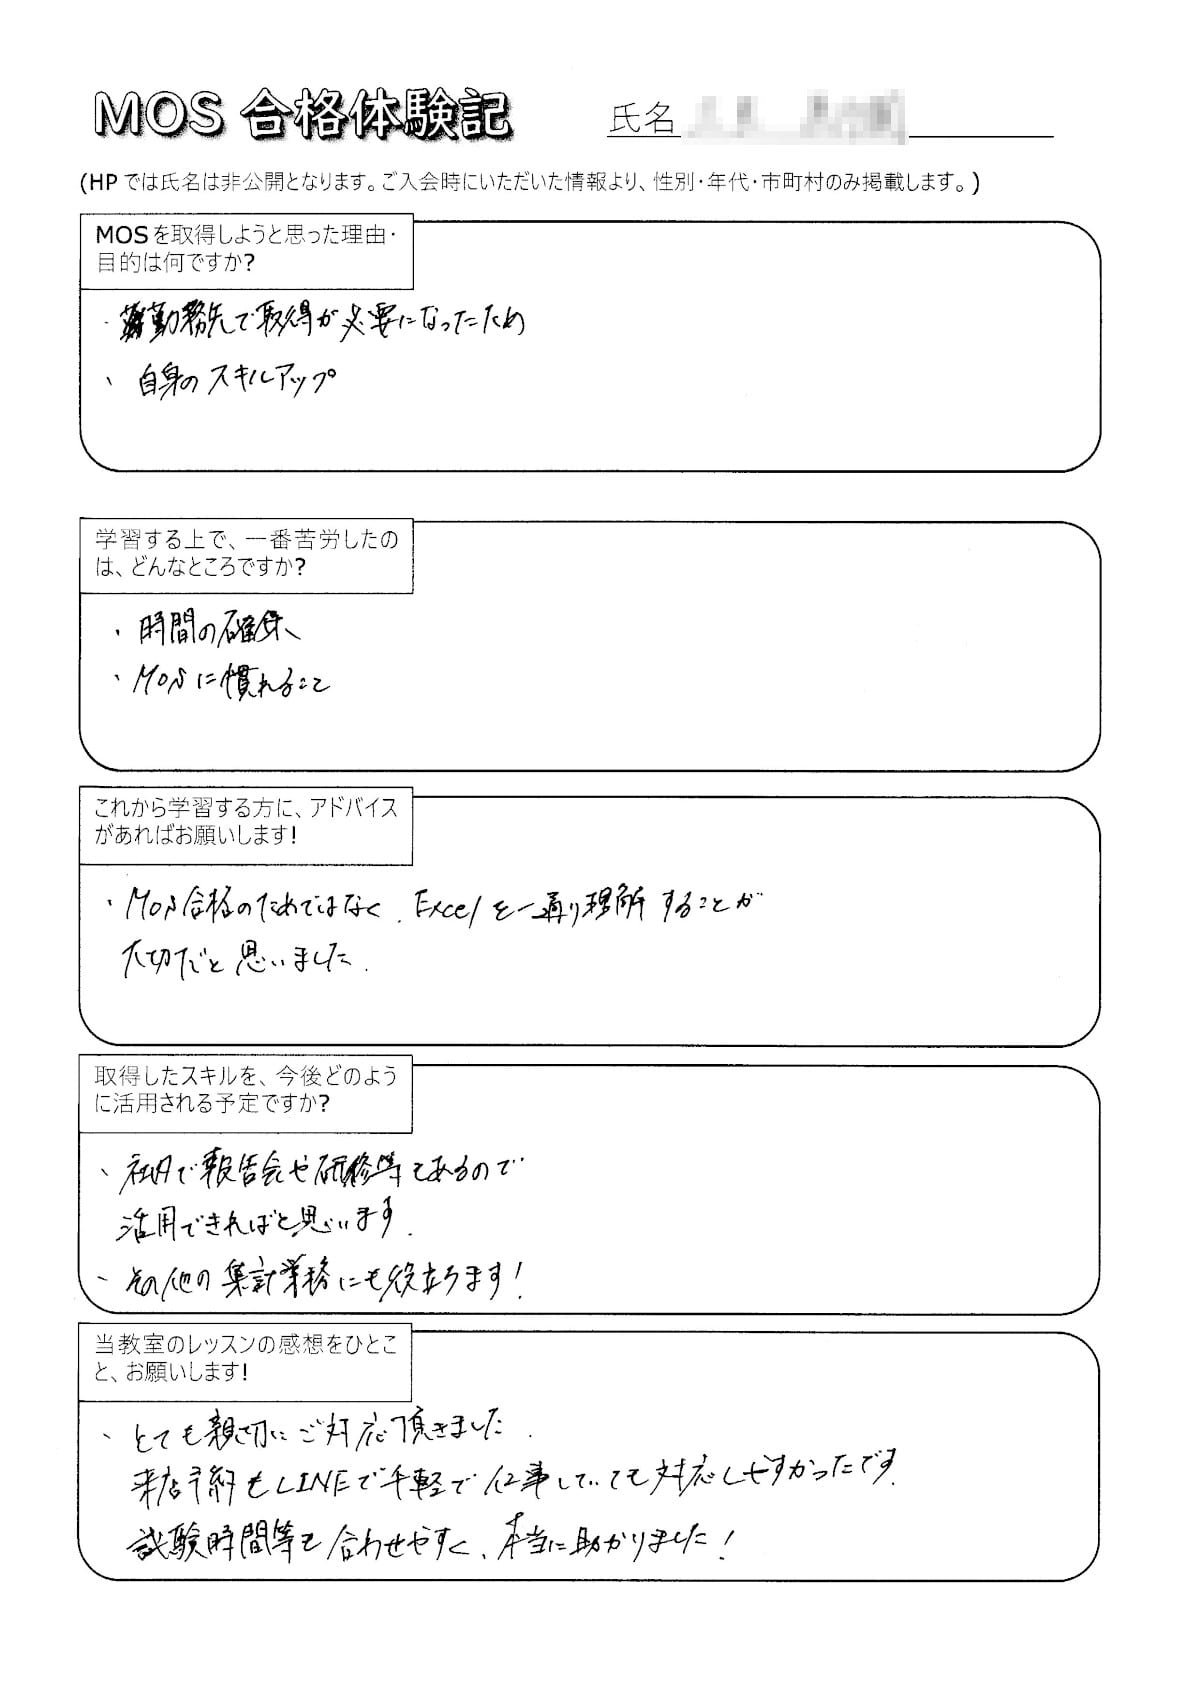 MOS 合格体験記
氏名
(HPでは氏名は非公開となります。ご入会時にいただいた情報より、性別・年代・市町村のみ掲載します。)
MOSを取得しようと思った理由・
目的は何ですか?
・勤務先で取得が必要になったため
・自身のスキルアップ
学習する上で、一番苦労したの
は、どんなところですか?
・時間の確保
・MOSに慣れること
これから学習する方に、アドバイス
があればお願いします!
・MOS合格のためではなく、Excelを一通り理解することが
大切だと思いました.
取得したスキルを、今後どのよう
に活用される予定ですか?
・社内で報告会や研修等もあるので
活用できればと思います.
・その他の集計業務にも役立ちます!
当教室のレッスンの感想をひとこ
と、お願いします!
・とても親切にご対応頂きました.
来店予約もLINEで手軽で仕事していても対応しやすかったです.
試験時間等も合わせやすく、本当に助かりました!